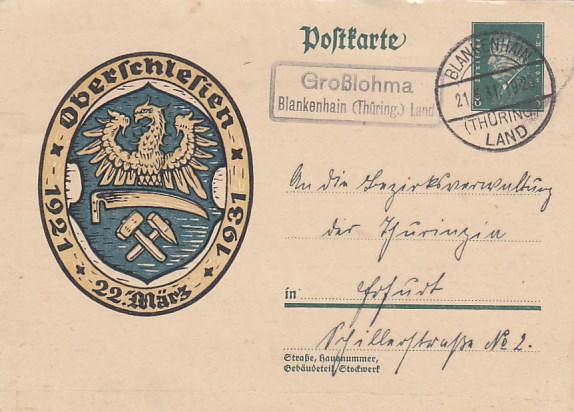 Postkarte
Großlohma
Blankenhain (Thüring.) Land
BLANKENHAIN
(THÜRING.)
LAND
Oberschlesien
1921 1931
22. März
An die Bezirksverwaltung
der Thuringia
in Erfurt
Schillerstraße No 2.
Straße, Hausnummer,
Gebäudeteil, Stockwerk